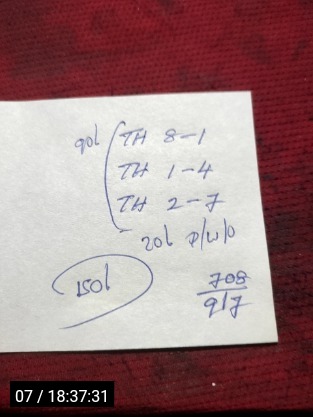 90l TH 8-1
TH 1-4
TH 2-7
20l P/W/O
150l
708
917
07 / 18:37:31